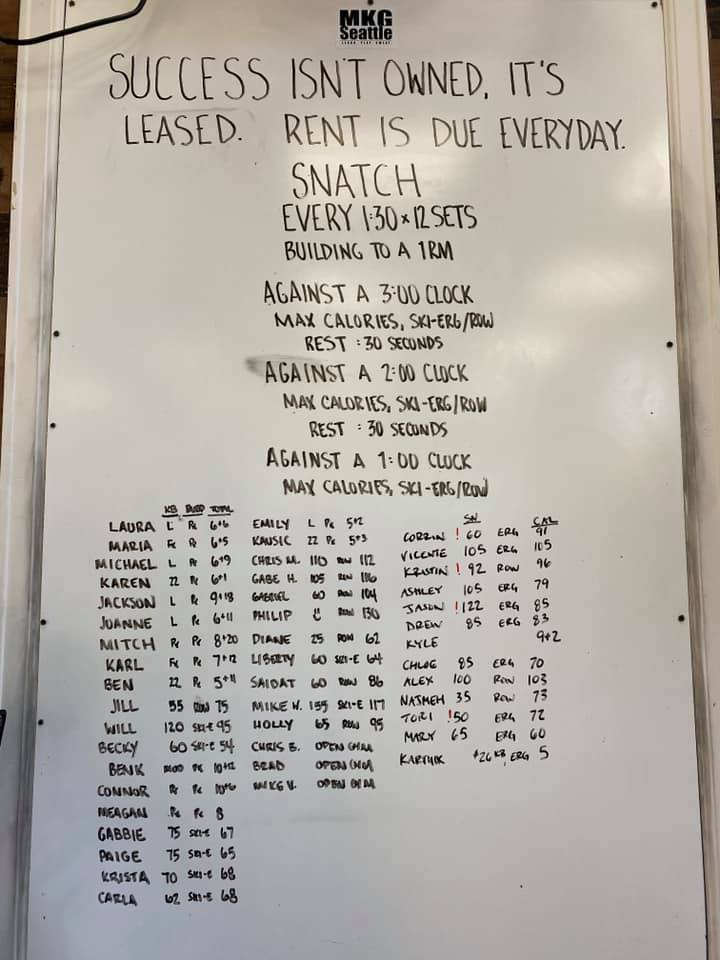 MKG
Seattle
LEARN. PLAY. SWEAT.
SUCCESS ISN'T OWNED, IT'S
LEASED. RENT IS DUE EVERYDAY.
SNATCH
EVERY 1:30 × 12 SETS
BUILDING TO A 1RM
AGAINST A 3:00 CLOCK
MAX CALORIES, SKI-ERG/ROW
REST :30 SECONDS
AGAINST A 2:00 CLOCK
MAX CALORIES, SKI-ERG/ROW
REST :30 SECONDS
AGAINST A 1:00 CLOCK
MAX CALORIES, SKI-ERG/ROW
KB TOTAL
LAURA L Rx 6+6
MARIA Rx 6+5
MICHAEL L Rx 6+9
KAREN 22 Rx 6+1
JACKSON L Rx 9+18
JOANNE L Rx 6+11
MITCH Rx Rx 8+20
KARL Rx 7+12
BEN 22 Rx 5+11
JILL 55 ROW 75
WILL 120 SKI-E 95
BECKY 60 SKI-E 54
BENK MOD Rx 10+12
CONNOR Rx Rx 10+6
MEAGAN Rx Rx 8
GABBIE 75 SKI-E 67
PAIGE 75 SKI-E 65
KRISTA 70 SKI-E 68
CARLA 62 SKI-E 68
EMILY L Rx 5+2
KAUSIC 22 Rx 5+3
CHRIS M. 110 ROW 112
GABE H. 105 ROW 116
GABRIEL 60 ROW 104
PHILIP ROW 130
DIANE 25 ROW 62
LIBERTY 60 SKI-E 64
SAIDAT 60 ROW 86
MIKE W. 155 SKI-E 117
HOLLY 65 ROW 95
CHRIS B. OPEN GYM
BRAD OPEN GYM
MIKE V. OPEN GYM
SN CAL
CORRIN ! 60 ERG 91
VICENTE 105 ERG 105
KRISTIN ! 92 ROW 96
ASHLEY 105 ERG 79
JASON ! 122 ERG 85
DREW 85 ERG 83
KYLE 9+2
CHLOE 85 ERG 70
ALEX 100 ROW 103
NAJMEH 35 ROW 73
TORI ! 50 ERG 72
MARY 65 ERG 60
KARTHIK *26 KB, ERG 5